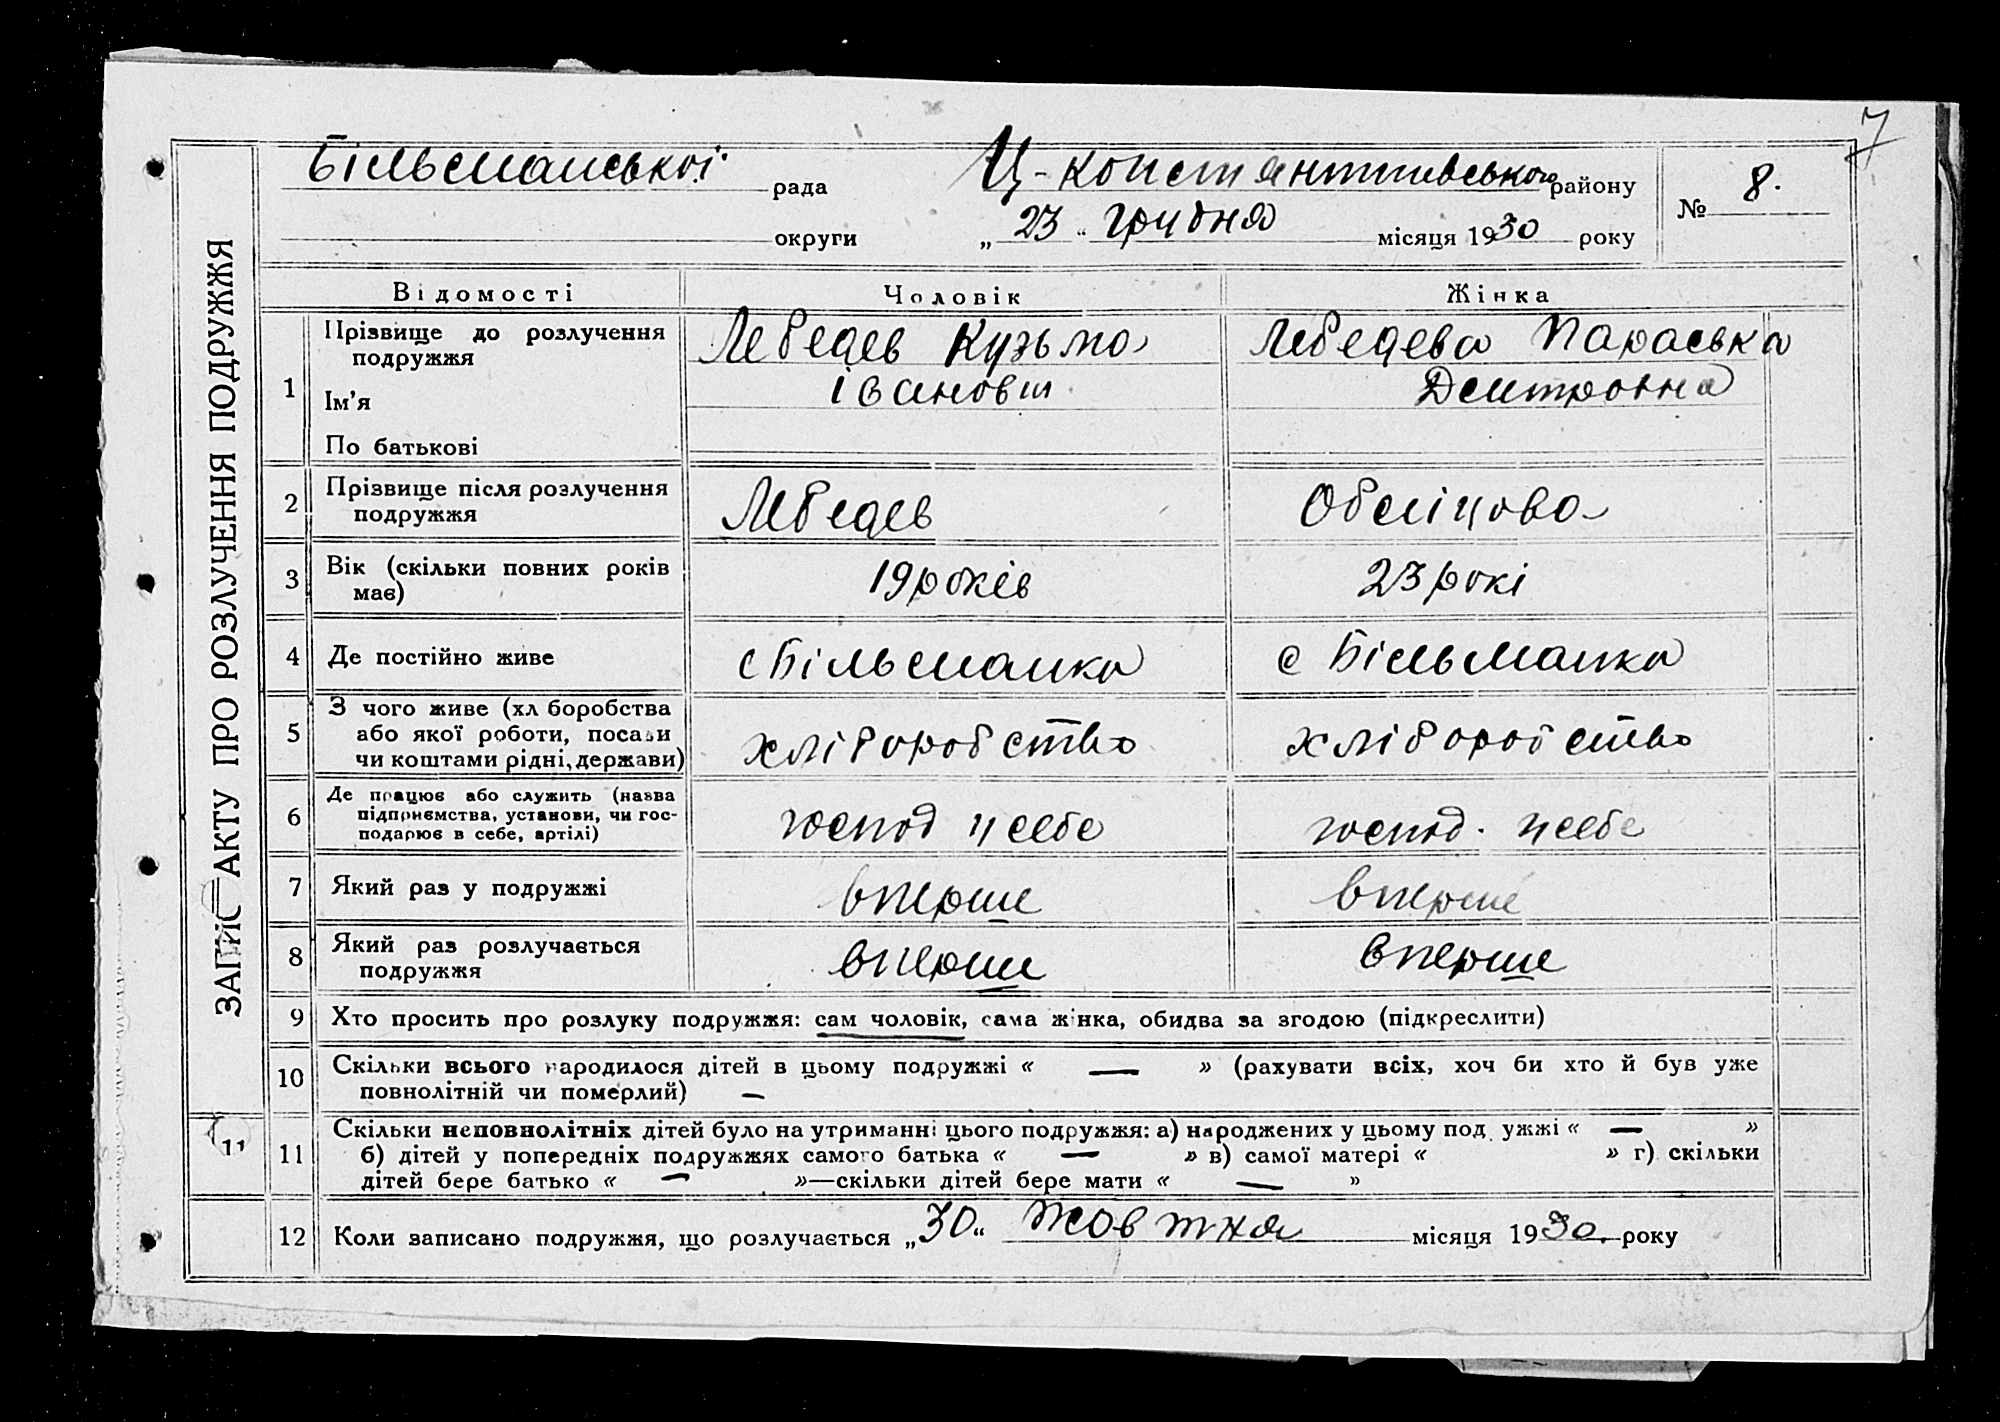 7
Більманської рада Ц-Константинівського району № 8.
округи „23“ грудня місяця 1930 року
ЗАПИС АКТУ ПРО РОЗЛУЧЕННЯ ПОДРУЖЖЯ
Відомості Чоловік Жінка
1 Прізвище до розлучення подружжя Лебедев Кузьма Лебедева Параська
Ім’я Іванович Дмитровна
По батькові
2 Прізвище після розлучення
подружжя Лебедев
3 Вік (скільки повних років
має) 19 років 23 рокі
4 Де постійно живе с Більманка с Більманка
5 З чого живе (хл боробства
або якої роботи, посади
чи коштами рідні, держави) хліборобство хліборобство
6 Де працює або служить (назва
підприємства, установи, чи гос-
подарює в себе, артілі) господ у себе господ. у себе
7 Який раз у подружжі вперше вперше
8 Який раз розлучається
подружжя вперше вперше
9 Хто просить про розлуку подружжя: сам чоловік, сама жінка, обидва за згодою (підкреслити)
10 Скільки всього народилося дітей в цьому подружжі « — » (рахувати всіх, хоч би хто й був уже
повнолітній чи померлий) —
11 Скільки неповнолітніх дітей було на утриманні цього подружжя: а) народжених у цьому под ужжі « — »
б) дітей у попередніх подружжях самого батька « — » в) самої матері « » г) скільки
дітей бере батько « — »—скільки дітей бере мати « — »
11
12 Коли записано подружжя, що розлучається „30“ жовтня місяця 1930. року